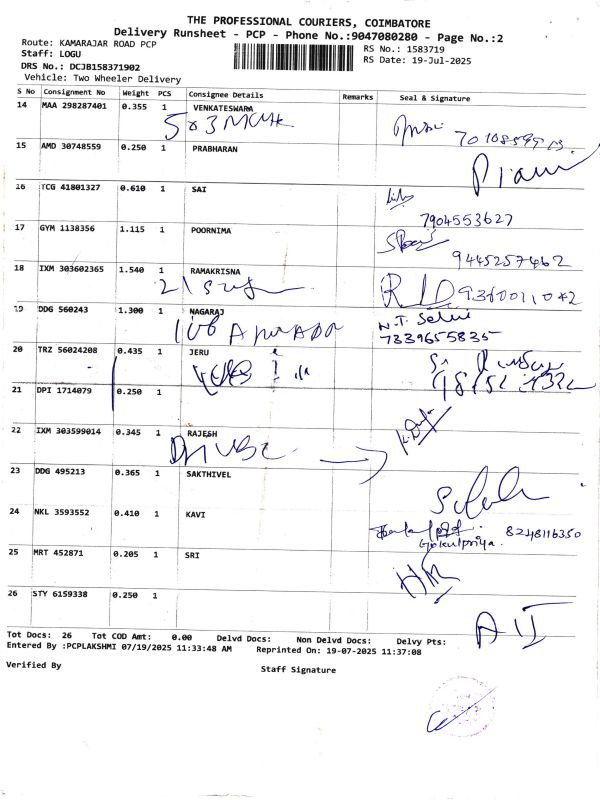 THE PROFESSIONAL COURIERS, COIMBATORE
Delivery Runsheet - PCP - Phone No.:9047080280 - Page No.:2
Route: KAMARAJAR ROAD PCP
RS No.: 1583719
Staff: LOGU
RS Date: 19-Jul-2025
DRS No.: DCJB158371902
Vehicle: Two Wheeler Delivery
S No Consignment No Weight PCS Consignee Details Remarks Seal & Signature
14 MAA 298287401 0.355 1 VENKATESWARA
15 AMD 30748559 0.250 1 PRABHARAN
16 TCG 41801327 0.610 1 SAI
7904553627
17 GYM 1138356 1.115 1 POORNIMA
9445257462
18 IXM 303602365 1.540 1 RAMAKRISNA
19 DDG 560243 1.300 1 NAGARAJ
N.T. Selvi
7339655835
20 TRZ 56024208 0.435 1 JERU
21 DPI 1714079 0.250 1
22 IXM 303599014 0.345 1 RAJESH
23 DDG 495213 0.365 1 SAKTHIVEL
24 NKL 3593552 0.410 1 KAVI
8248116350
Gokulpriya.
25 MRT 452871 0.205 1 SRI
26 STY 6159338 0.250 1
Tot Docs: 26 Tot COD Amt: 0.00 Delvd Docs: Non Delvd Docs: Delvy Pts:
Entered By :PCPLAKSHMI 07/19/2025 11:33:48 AM Reprinted On: 19-07-2025 11:37:08
Verified By
Staff Signature